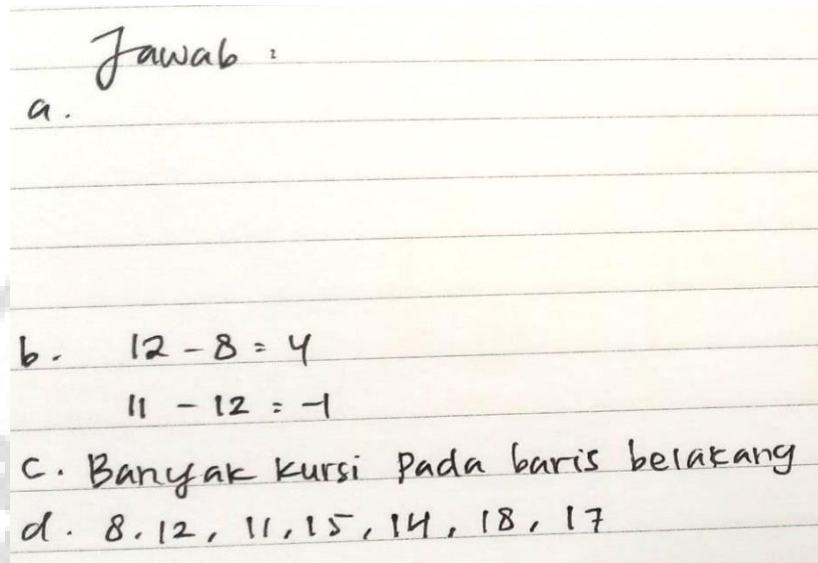 Jawab :
a.
b. 12 - 8 = 4
11 - 12 = -1
c. Banyak kursi pada baris belakang
d. 8, 12, 11, 15, 14, 18, 17